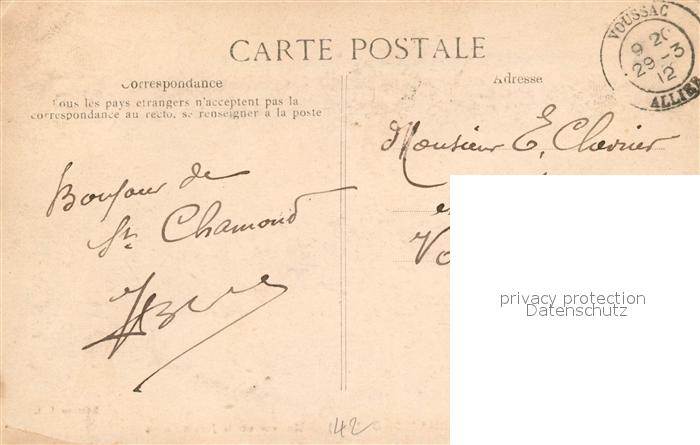 CARTE POSTALE
Correspondance
Tous les pays etrangers n'acceptent pas la
correspondance au recto, se renseigner à la poste
Bonjour de
St. Chamond
Adresse
VOUSSAC
9 20
29 - 3
12
ALLIER
Monsieur E. Chevrier
privacy protection
Datenschutz
42